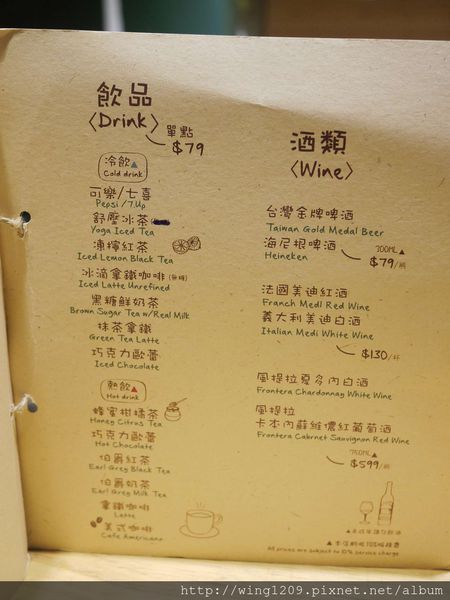 飲品
〈Drink〉
單點
$79
冷飲▲
Cold drink
可樂/七喜
Pepsi /7.Up
舒壓冰茶
Yoga Iced Tea
凍檸紅茶
Iced Lemon Black Tea
冰滴拿鐵咖啡(無糖)
Iced Latte Unrefined
黑糖鮮奶茶
Brown Sugar Tea w/Real Milk
抹茶拿鐵
Green Tea Latte
巧克力歐蕾
Iced Chocolate
熱飲▲
Hot drink
蜂蜜柑橘茶
Honey Citrus Tea
巧克力歐蕾
Hot Chocolate
伯爵紅茶
Earl Grey Black Tea
伯爵奶茶
Earl Grey Milk Tea
拿鐵咖啡
Latte
美式咖啡
Cafe Americano
酒類
〈Wine〉
台灣金牌啤酒
Taiwan Gold Medal Beer
海尼根啤酒
Heineken
300ML▲
$79/瓶
法國美迪紅酒
Franch Medl Red Wine
義大利美迪白酒
Italian Medi White Wine
$130/杯
風提拉夏多內白酒
Frontera Chardonnay White Wine
風提拉
卡本內蘇維儂紅葡萄酒
Frontera Cabrnet Sauvignon Red Wine
750ML▲
$599/瓶
▲未成年請勿飲酒
▲本店酌收10%服務費
All prices are subject to 10% service charge
http://wing1209.pixnet.net/album